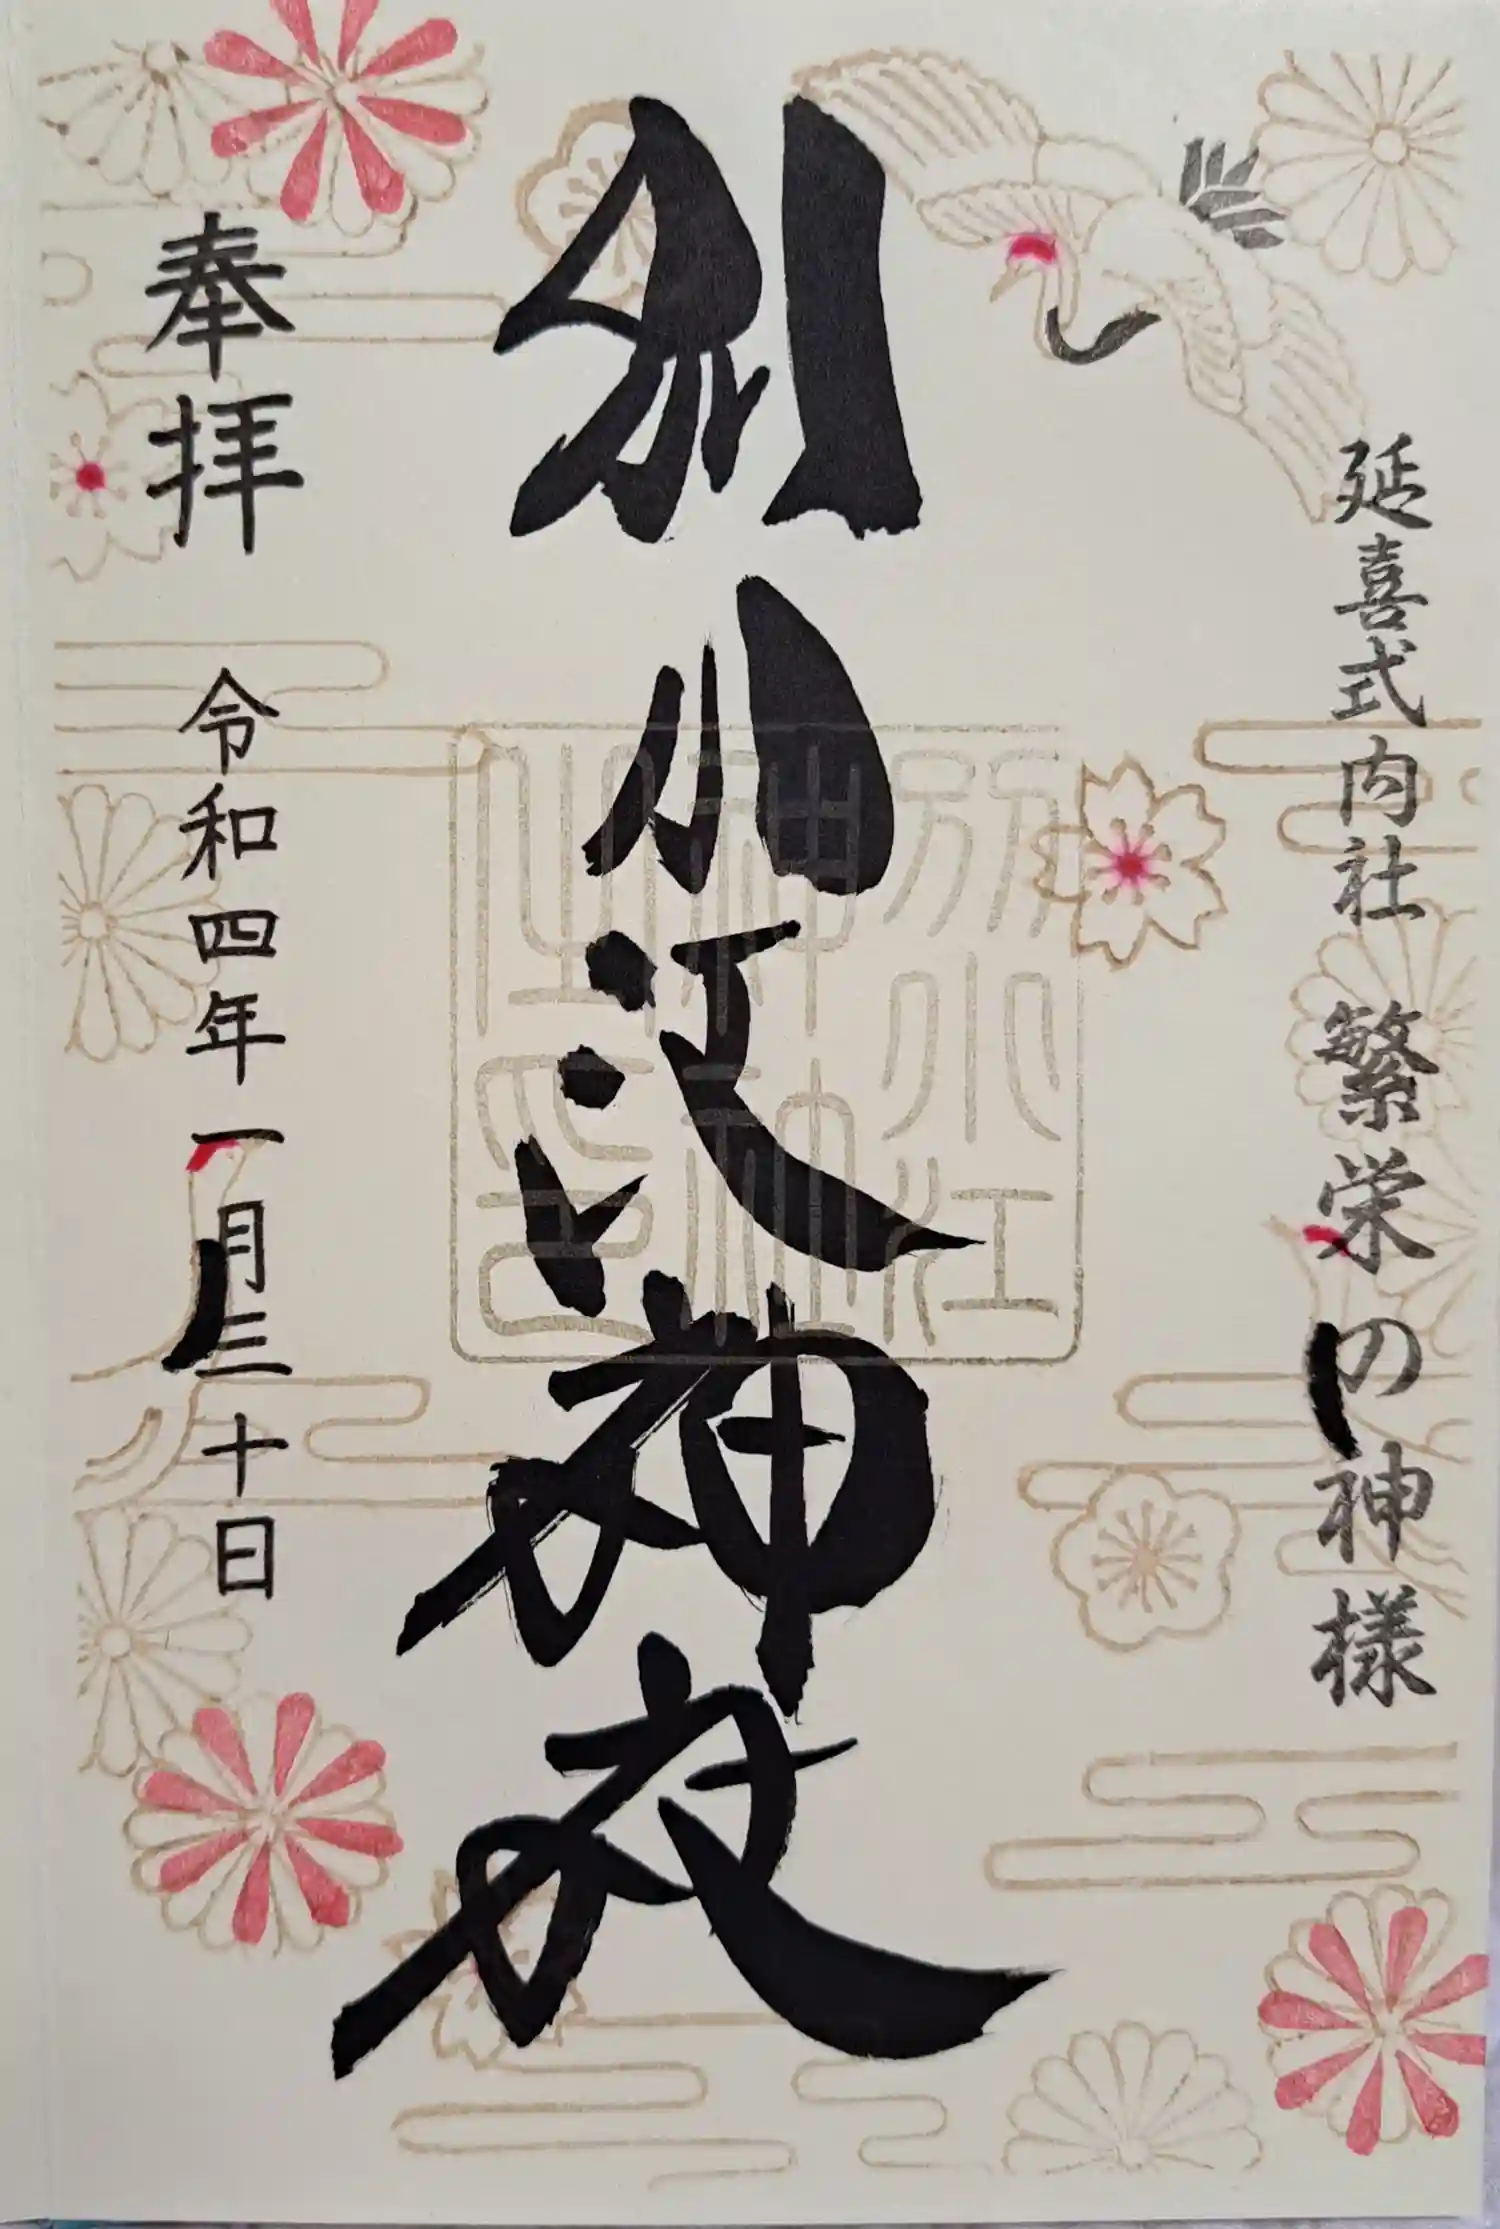 延喜式内社 繁栄の神様
別小江神社
奉拝 令和四年一月三十日
別小江
神社
之印